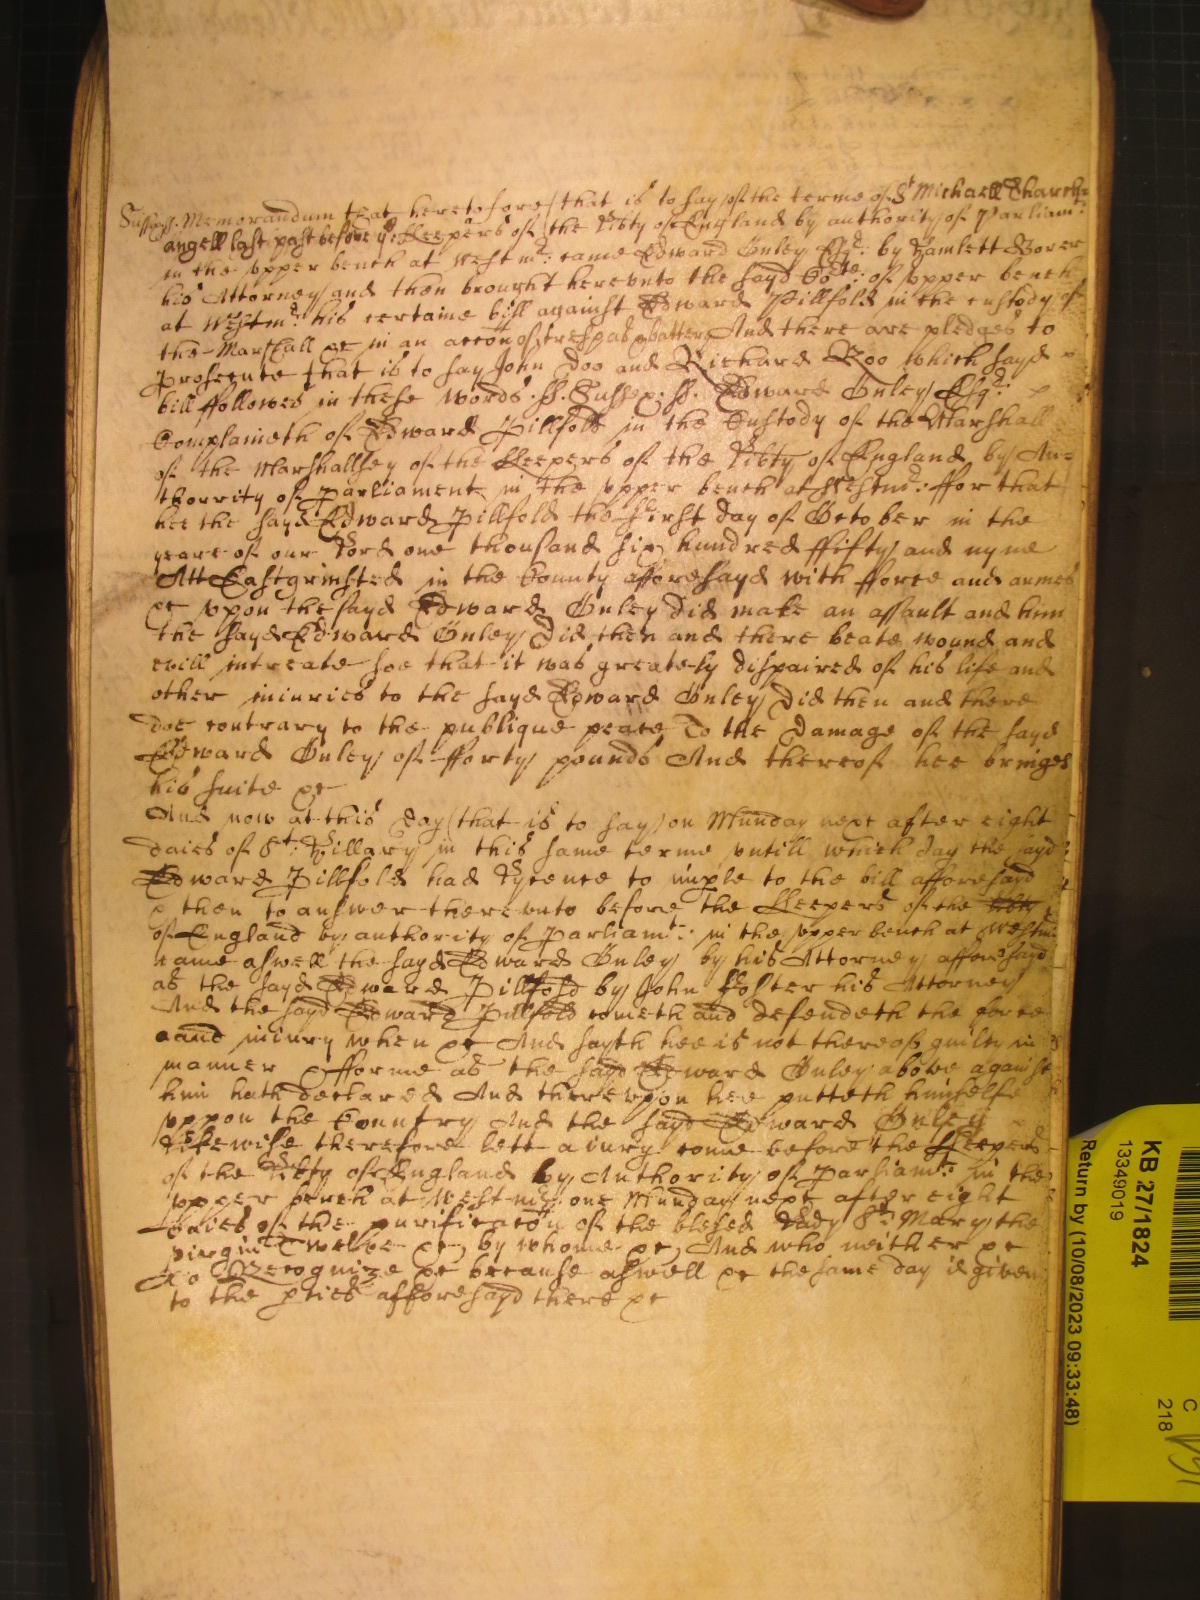 Sussex ss. Memorandum that heretofore (that is to say) of the terme of St Michaell Tharch=
angell last past before ye Keepers of the Libty of England by authority of Parliamt:
in the upper bench at Westmr: came Edward Onley Esqr: by Hamlett Bover
his Attorney and then brought here unto the sayd Cote: of upper bench
at Westmr: his certaine bill against Edward Pillfold in the custody of
the Marshall &c in an accon of trespas & battery And there are pledges to
prosecute that is to say John Doo and Richard Roo which sayd
bill followes in these words. ss. Sussex. ss. Edward Onley Esqr:
Complaineth of Edward Pillfold in the Custody of the Marshall
of the Marshallsey of the Keepers of the Libty of England by Au=
thorrity of Parliament in the upper bench at Westmr: ffor that
hee the sayd Edward Pillfold the first day of October in the
yeare of our Lord one thousand six hundred ffifty and nyne
Att Eastgrinsted in the County afforesayd with fforce and armes
&c uppon the sayd Edward Onley did make an assault and him
the sayd Edward Onley did then and there beate wound and
evill intreate soe that it was greately dispaired of his life and
other iniuries to the sayd Edward Onley did then and there
doe contrary to the publique peace To the damage of the sayd
Edward Onley of fforty pounds And thereof hee bringes
his suite &c
And now at this day (that is to say) on Munday next after eight
daies of St: Hillary in this same terme untill which day the sayd
Edward Pillfold had Lycence to imple to the bill afforesayd
& then to answer there unto before the Keepers of the Libty
of England by authority of Parliamt: in the upper bench at Westmr
came aswell the sayd Edward Onley by his Attorney afforesayd
as the sayd Edward Pillfold by John Foster his Attorney
And the sayd Edward Pillfold cometh and defendeth the force
and iniury when &c And sayth hee is not thereof guilty in
manner & fforme as the sayd Edward Onley above against
him hath declared And thereupon hee putteth himselfe
uppon the Country And the sayd Edward Onley
Likewise therefore lett a iury come before the Keepers
of the Libty of England by Authority of Parliamt: in the
upper bench at Westmr: one Munday next after eight
daies of the purificacon of the blesed Lady St: Mary the
virgin Twelve &c by whome &c And who neither &c
To Recognize &c because aswell &c the same day is given
to the pties afforesayd there &c
KB 27/1824
13349019
Return by (10/08/2023 09:33:48)
C
218